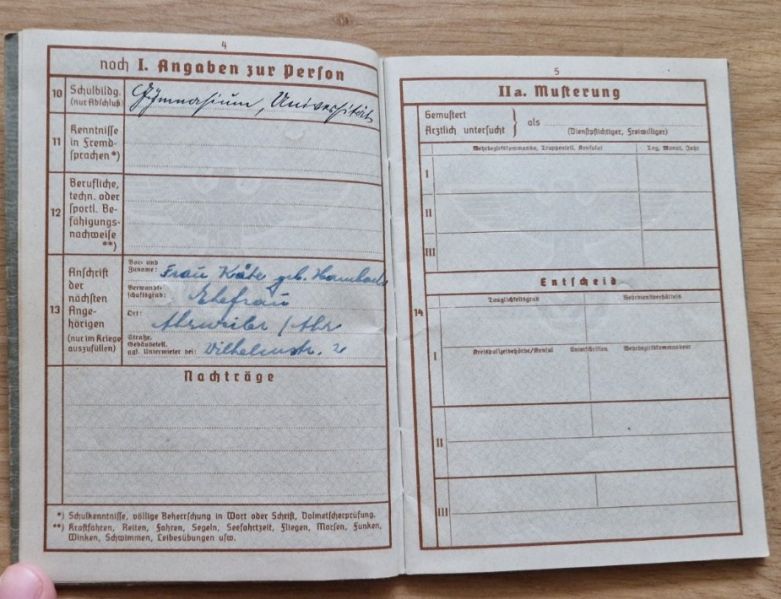 4
noch I. Angaben zur Person
10 Schulbildg. (nur Abschluß) Gymnasium, Universität
11 Kenntnisse in Fremdsprachen *)
12 Berufliche, techn. oder sportl. Befähigungsnachweise **)
13 Anschrift der nächsten Angehörigen (nur im Kriege auszufüllen)
Vor- und Zuname: Frau Käte geb. Hambach
Verwandtschaftsgrad: Ehefrau
Ort: Ahrweiler / Ahr
Straße, Gebäudeteil, ggf. Untermieter bei: Wilhelmstr. 2
Nachträge
*) Schulkenntnisse, völlige Beherrschung in Wort oder Schrift, Dolmetscherprüfung.
**) Kraftfahren, Reiten, Fahren, Segeln, Seefahrtzeit, Fliegen, Morsen, Funken,
Winken, Schwimmen, Leibesübungen usw.
5
IIa. Musterung
Gemustert
Ärztlich untersucht } als
(Dienstpflichtiger, Freiwilliger)
Wehrbezirkskommando, Truppenteil, Konsulat Tag, Monat, Jahr
I
II
III
Entscheid
14 Tauglichkeitsgrad Wehrdienstverhältnis
I Kreispolizeibehörde/Konsul Unterschriften Wehrbezirkskommandeur
II
III